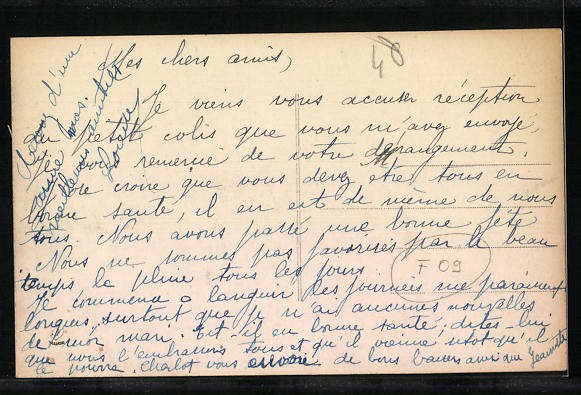 Mes chers amis,
48
Je viens vous accuser réception
du petit colis que vous m'avez envoyé,
je vous remercie de votre dérangement.
Je croire que vous devez être tous en
bonne santé, il en est de même de nous
tous. Nous avons passé une bonne fête
Nous ne sommes pas favorisés par le beau
temps la pluie tous les jours.
Je commence a languir les journées me paraissent
longues, surtout que je n'ai aucunes nouvelles
de mon mari. Est-il en bonne santé, dites-lui
que nous l'embrassons tous et qu'il vienne sitot qu'il
le pourra. Chalot vous envoie de bons baisers ainsi que Jeannette
F 09
d'une